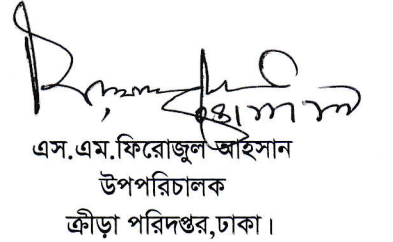 এস.এম.ফিরোজুল আহসান
উপপরিচালক
ক্রীড়া পরিদপ্তর,ঢাকা।